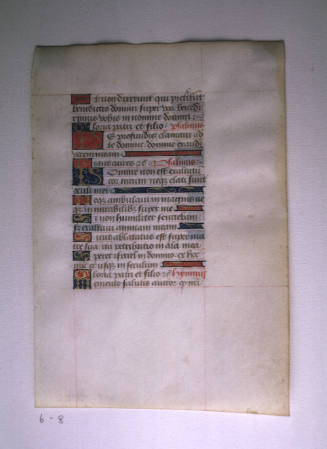 Et non dixerunt qui preteribant
benedictio domini super vos benedi
ximus vobis in nomine domini
Gloria patri et filio psalmus
De profundis clamavi ad
te domine domine exaudi
vocem meam
Fiant aures et c psalmus
Domine non est exaltatum
cor meum neque elati sunt
oculi mei
Neque ambulavi in magnis ne
que in mirabilibus super me
Si non humiliter sentiebam
sed exaltavi animam meam
Sicut ablactatus est super ma
tre sua ita retributio in aia mea
Speret israel in domino ex hoc
nunc et usque in seculum
Gloria patri et filio et hymnus
Memento salutis auctor
6 - 8